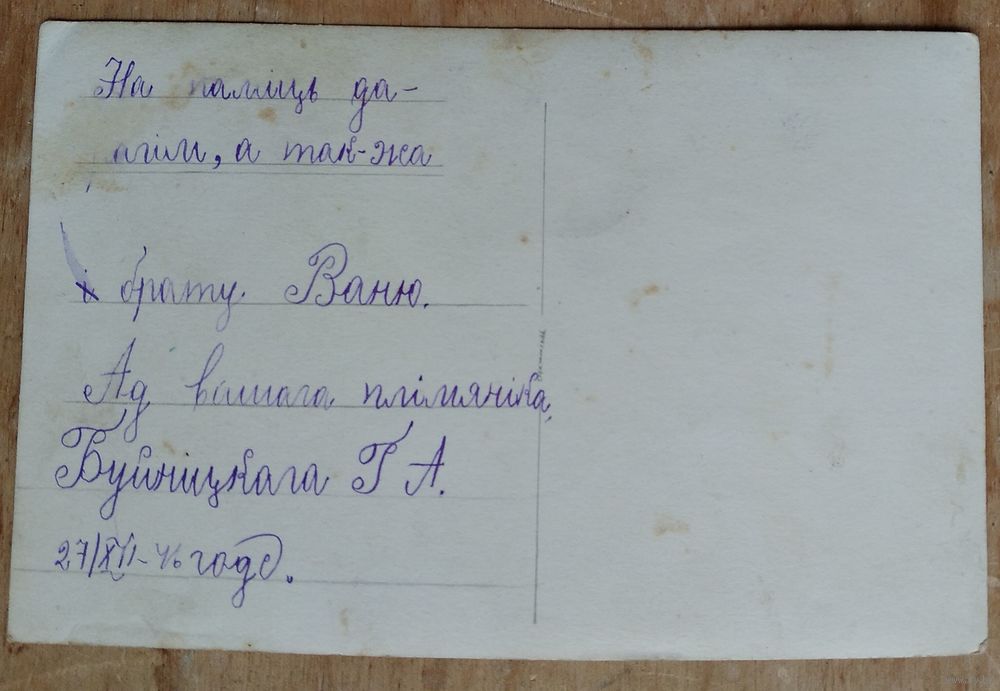 На памяць да-
агім, а так-жа
і брату. Ваню.
Ад вашага плімяніка,
Буйніцкага Г А.
27/XII-46 года.